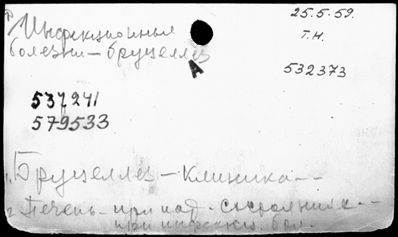 Инфекционные
болезни – бруцеллёз
25.5.59.
Т.Н.
532373
А
537241
579533
1. Бруцеллёз – клиника --
2. Печень – при пат. состояниях --
при инфекц. бол.